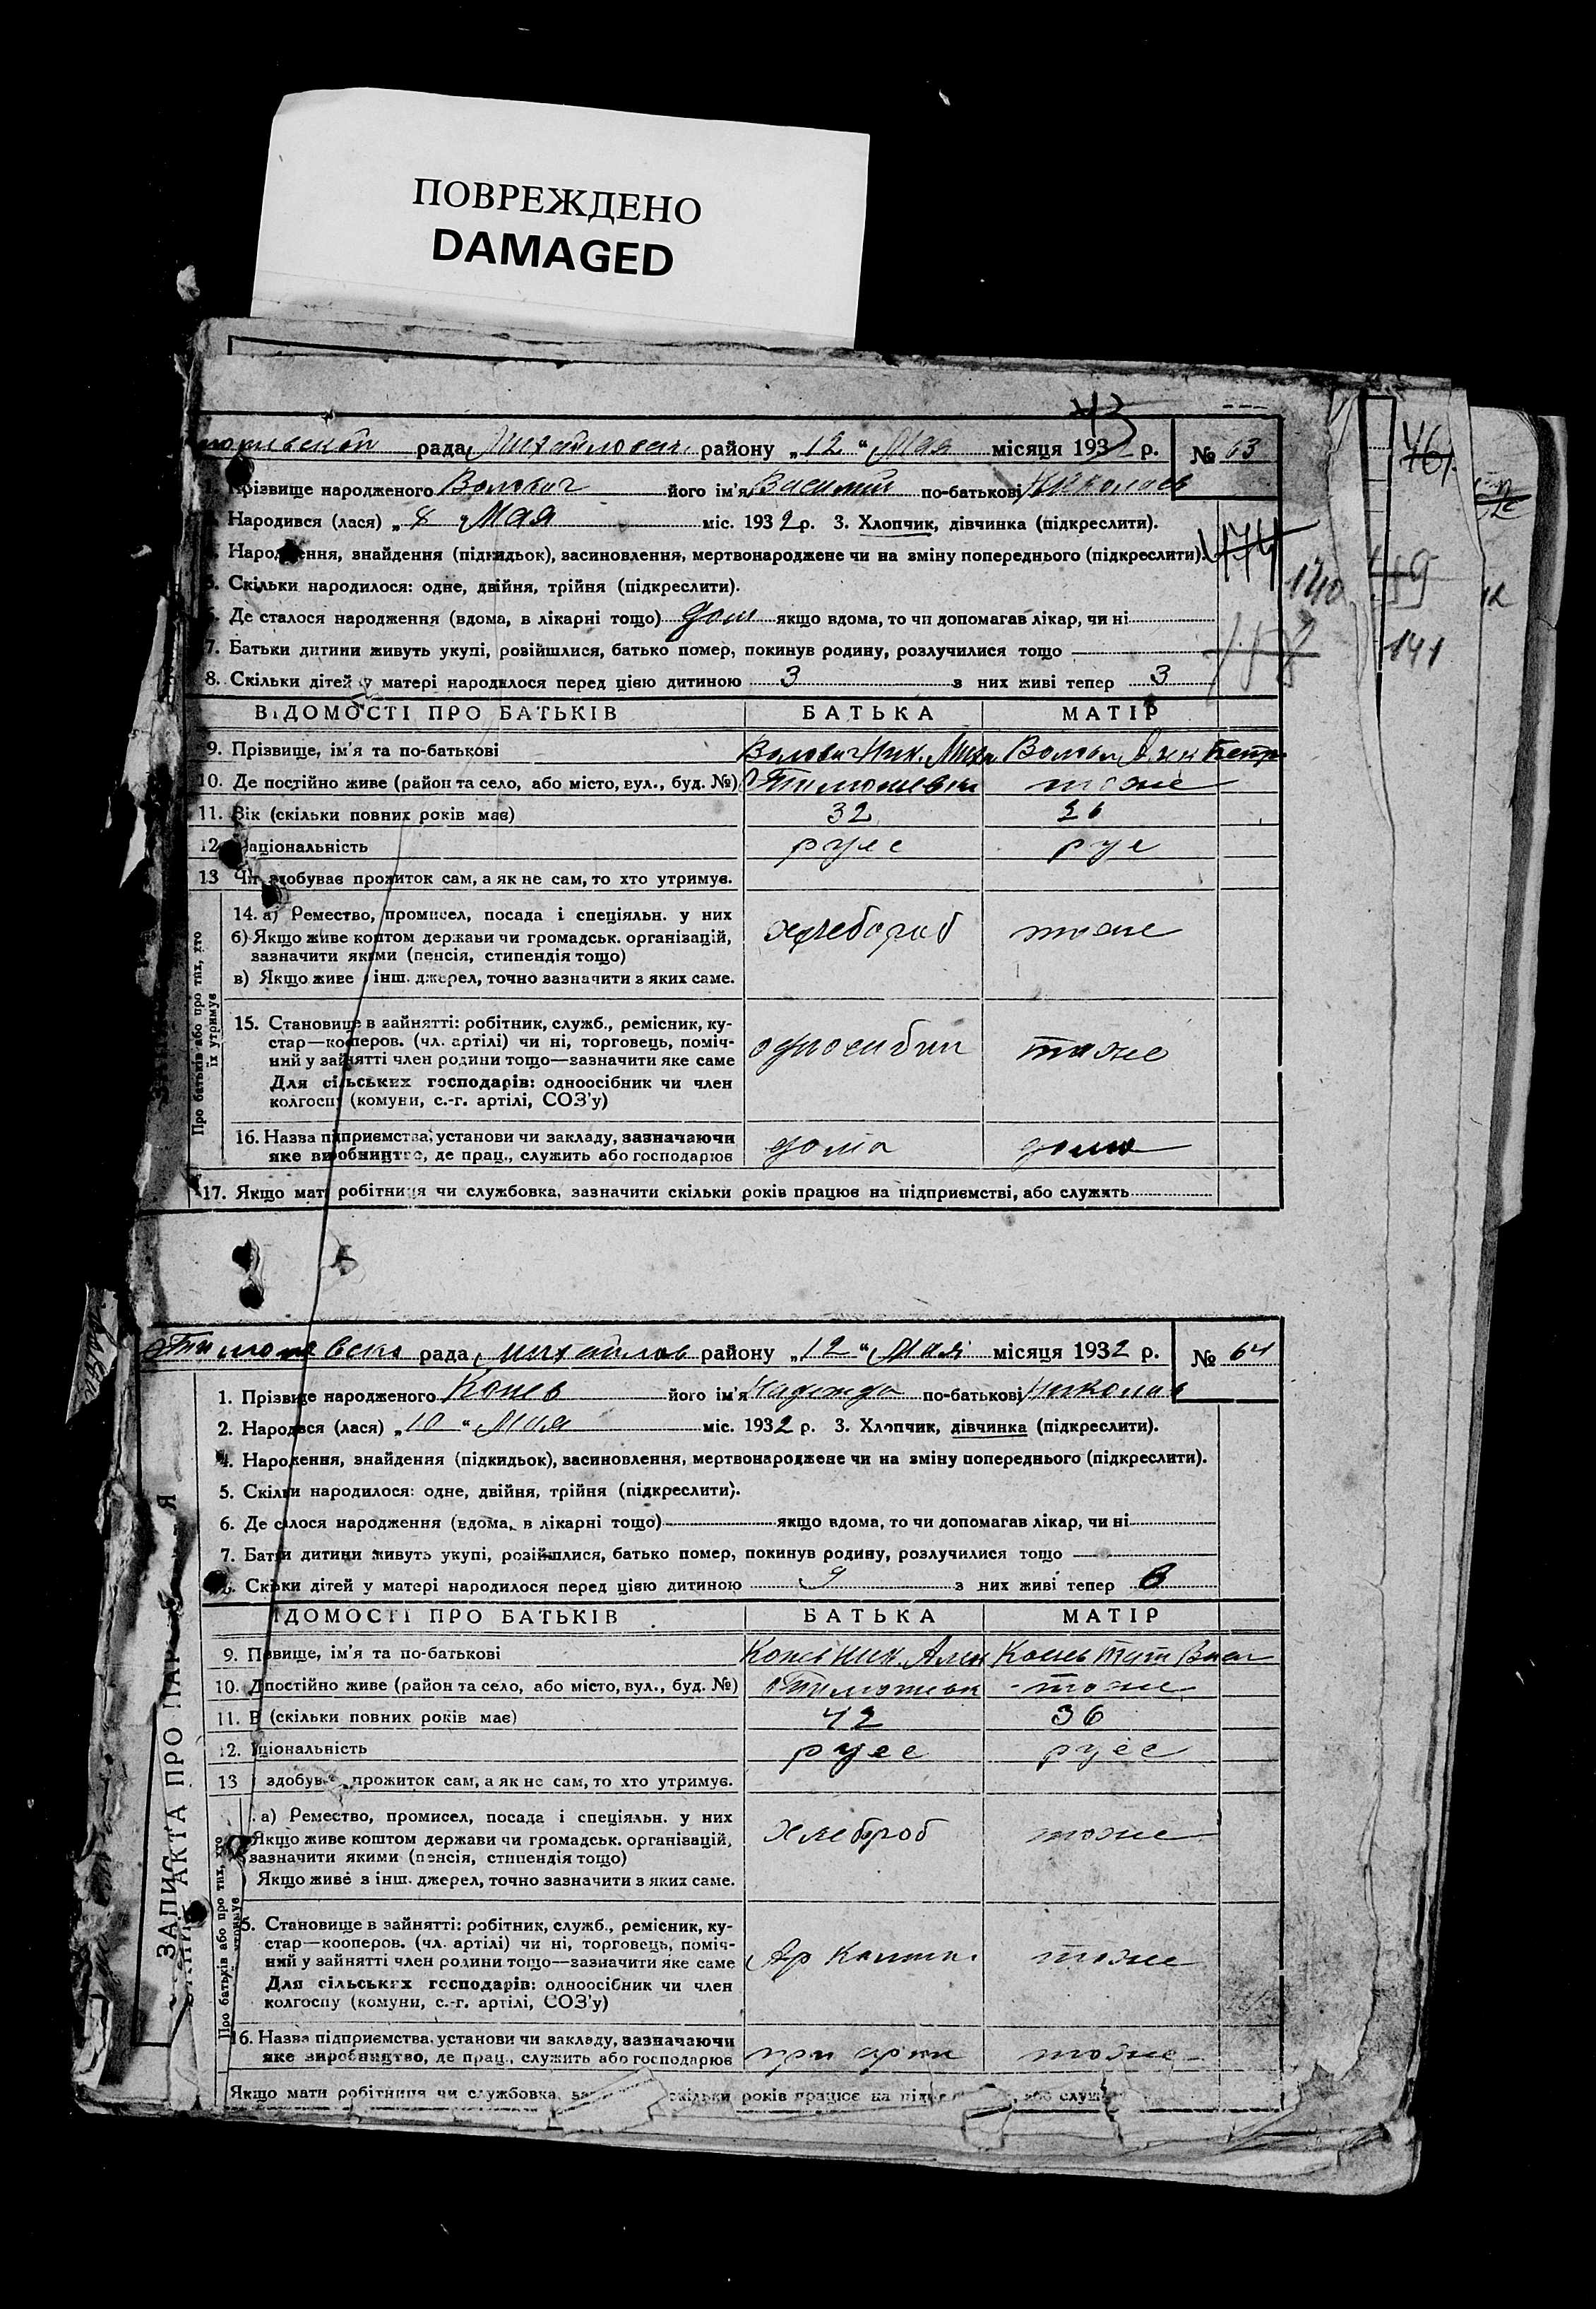 ПОВРЕЖДЕНО
DAMAGED
43
рада, району „12“ Мая місяця 1932 р. № 63
Прізвище народженого Волович його ім'я Василий по-батькові Николаев
Народився (лася) „8“ Мая міс. 1932 р. 3. Хлопчик, дівчинка (підкреслити).
Народження, знайдення (підкидьок), васиновлення, мертвонароджене чи на зміну попереднього (підкреслити).
5. Скільки народилося: одне, двійня, трійня (підкреслити).
6. Де сталося народження (вдома, в лікарні тощо) дом якщо вдома, то чи допомагав лікар, чи ні
7. Батьки дитини живуть укупі, розійшлися, батько помер, покинув родину, розлучилися тощо
8. Скільки дітей у матері народилося перед цією дитиною 3 з них живі тепер 3
474
140
49
141
12
ВІДОМОСТІ ПРО БАТЬКІВ БАТЬКА МАТІР
9. Прізвище, ім'я та по-батькові Волович Ник. Миха Петр
10. Де постійно живе (район та село, або місто, вул., буд. №) Тимошевк тоже
11. Вік (скільки повних років має) 32 26
12. Національність русс рус
13 Чи здобуває прожиток сам, а як не сам, то хто утримує.
Про батьків або про тих, хто їх утримує
14. а) Ремество, промисел, посада і спеціяльн. у них
б) Якщо живе коштом держави чи громадськ. організацій, хлебороб тоже
зазначити якими (пенсія, стипендія тощо)
в) Якщо живе з інш. джерел, точно зазначити з яких саме.
15. Становище в зайнятті: робітник, служб., ремісник, ку-
стар—кооперов. (чл. артілі) чи ні, торговець, поміч-
ний у зайнятті член родини тощо—зазначити яке саме тоже
Для сільських господарів: одноосібник чи член
колгоспу (комуни, с.-г. артілі, СОЗ'у)
16. Назва підприємства, установи чи закладу, зазначаючи
яке виробництво, де прац., служить або господарює дома дома
17. Якщо мати робітниця чи службовка, зазначити скільки років працює на підприємстві, або служить
Тимошевска рада, Михайлов району „12“ Мая місяця 1932 р. № 64
1. Прізвище народженого Конев його ім'я Надежда по-батькові Николав
2. Народився (лася) „10“ Мая міс. 1932 р. 3. Хлопчик, дівчинка (підкреслити).
4. Народження, знайдення (підкидьок), васиновлення, мертвонароджене чи на зміну попереднього (підкреслити).
5. Скільки народилося: одне, двійня, трійня (підкреслити).
6. Де сталося народження (вдома, в лікарні тощо) якщо вдома, то чи допомагав лікар, чи ні
7. Батьки дитини живуть укупі, розійшлися, батько помер, покинув родину, розлучилися тощо
8. Скільки дітей у матері народилося перед цією дитиною 9 з них живі тепер 8
ВІДОМОСТІ ПРО БАТЬКІВ БАТЬКА МАТІР
9. Прізвище, ім'я та по-батькові Конев Ник. Конев Тат
10. Де постійно живе (район та село, або місто, вул., буд. №) Тимошевк тоже
11. Вік (скільки повних років має) 42 36
12. Національність русс русс
13 здобуває прожиток сам, а як не сам, то хто утримує.
ЗАПИС АКТА ПРО
Про батьків або про тих, хто утримує
а) Ремество, промисел, посада і спеціяльн. у них
Якщо живе коштом держави чи громадськ. організацій, хлебороб тоже
зазначити якими (пенсія, стипендія тощо)
Якщо живе з інш. джерел, точно зазначити з яких саме.
15. Становище в зайнятті: робітник, служб., ремісник, ку-
стар—кооперов. (чл. артілі) чи ні, торговець, поміч-
ний у зайнятті член родини тощо—зазначити яке саме тоже
Для сільських господарів: одноосібник чи член
колгоспу (комуни, с.-г. артілі, СОЗ'у)
16. Назва підприємства, установи чи закладу, зазначаючи
яке виробництво, де прац., служить або господарює при тоже
Якщо мати робітниця чи службовка, скільки років працює на